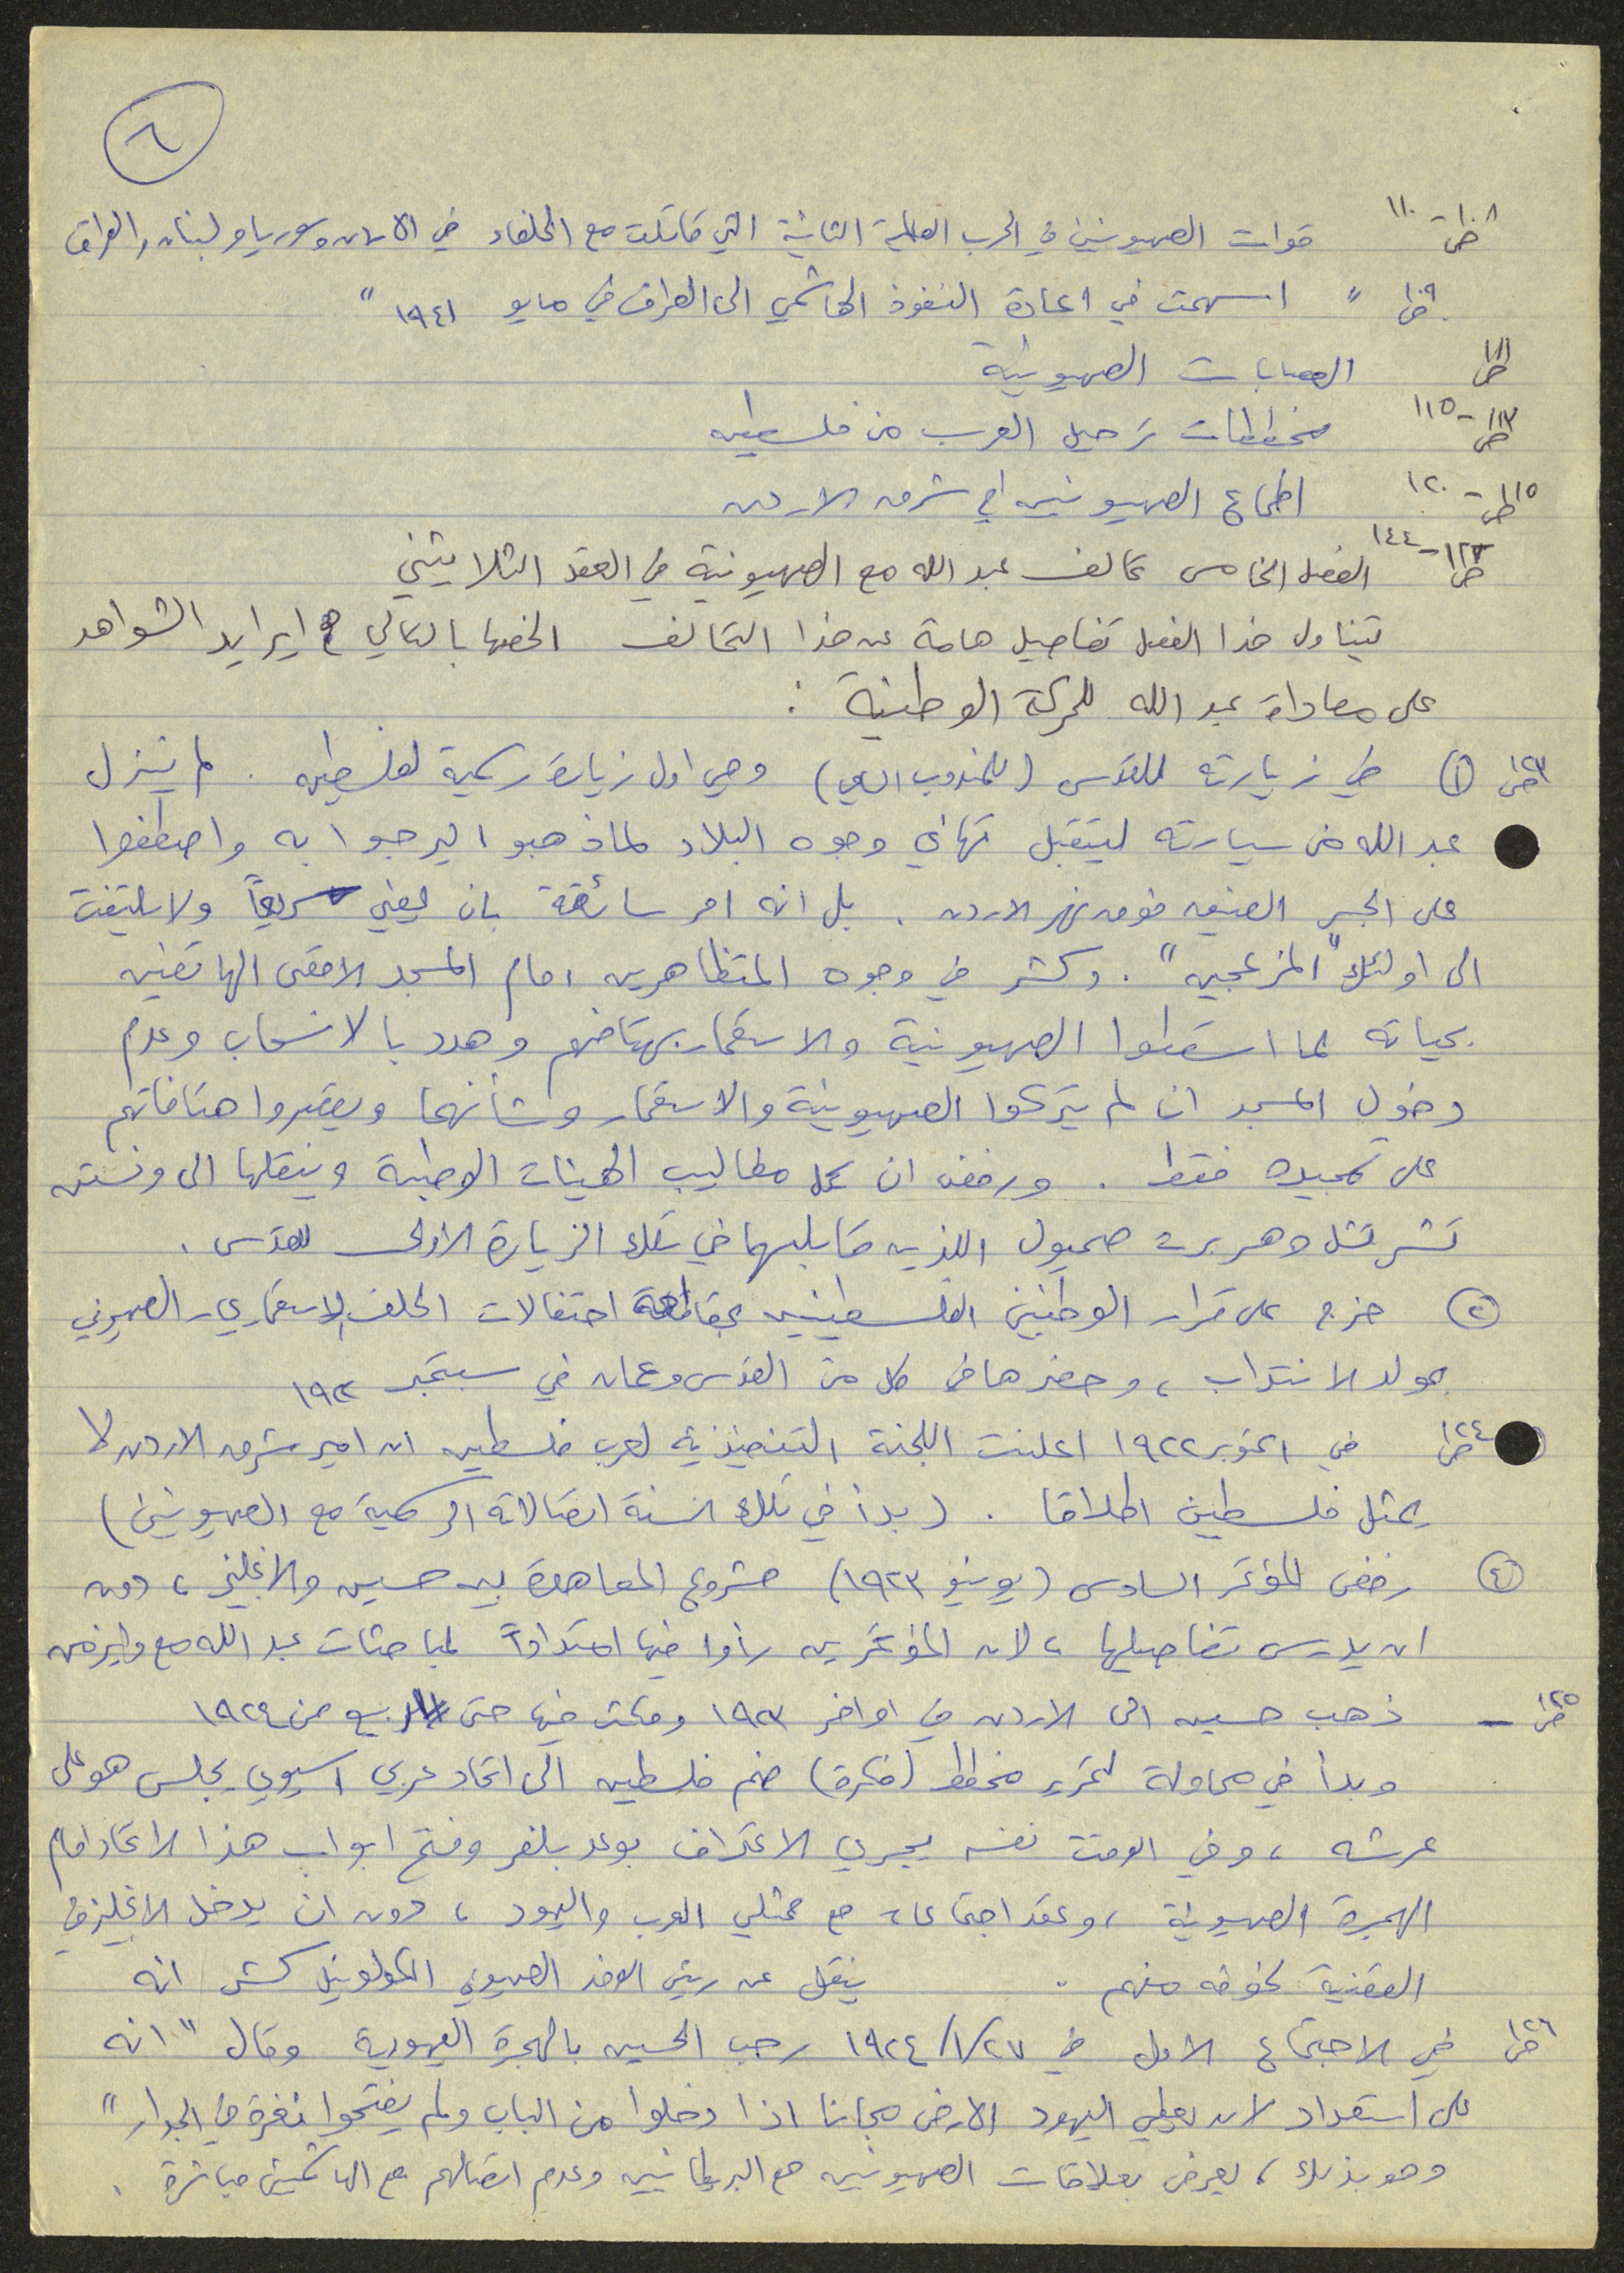 ٦
ص١٠٨ - ١١٠ قوات الصهيونيين في الحرب العالمية الثانية التي قاتلت مع الحلفاء في الاردن وسوريا ولبنان والعراق
ص١٠٩ " اسهمت في اعادة النفوذ الهاشمي الى العراق في مايو ١٩٤١ "
ص١١١ العصابات الصهيونية
ص١١٣ - ١١٥ مخططات ترحيل العرب من فلسطين
ص١١٥ - ١٢٠ اطماع الصهيونيين في شرق الاردن
ص١٢٣ - ١٤٤ الفصل الخامس تحالف عبد الله مع الصهيونية في العقد الثلاثيني
يتناول هذا الفصل تفاصيل هامة عن هذا التحالف الخصها بالتالي ايراد الشواهد
على معاداة عبد الله للحركة الوطنية :
ص١٢٣ (١) في زيارته للقدس (للمندوب السامي) وهي اول زيارة رسمية لفلسطين . لم ينزل
عبد الله من سيارته ليتقبل تهاني وجوه البلاد لما ذهبوا ليرحبوا به واصطفوا
على الجسر الضيق فوق نهر الاردن . بل انه امر سائقه بان يمضي سريعاً ولا يلتفت
الى اولئك "المزعجين" . وكشر في وجوه المتظاهرين امام المسجد الاقصى الهاتفين
بحياته لما اسقطوا الصهيونية والاستعمار بهتافهم وهدد بالانسحاب وعدم
دخول المسجد ان لم يتركوا الصهيونية والاستعمار وشأنهما ويقصروا هتافاتهم
على تمجيده فقط . ورفض ان يحمل مطاليب الهيئات الوطنية وينقلها الى ونستن
تشرتشل وهربرت صموئيل اللذين قابلهما في تلك الزيارة الاولى للقدس .
(٢) خرج على قرار الوطنيين الفلسطينيين بمقاطعة احتفالات الحلف الاستعماري - الصهيوني
بمولد الانتداب ، وحضرها في كل من القدس وعمان في سبتمبر
ص١٢٤ في اكتوبر ١٩٢٢ اعلنت اللجنة التنفيذية لعرب فلسطين ان امير شرق الاردن لا
يمثل فلسطين اطلاقا . (بدأ في تلك السنة اتصالاته الرسمية مع الصهيونيين)
(٤) رفض المؤتمر السادس (يونيو ١٩٢٣) مشروع المعاهدة بين حسين والانجليز ، دون
ان يدرس تفاصيلها ، لان المؤتمرين رأوا فيها امتداداً لمباحثات عبد الله مع وايزمن
ص١٢٥ - ذهب حسين الى الاردن في اواخر ١٩٢٣ ومكث فيها حتى ربيع من ١٩٢٤
وبدأ في محاولة لتمرير مخطط (فكرة) ضم فلسطين الى اتحاد عربي اسيوي يجلس هو على
عرشه ، وفي الوقت نفسه يجري الاعتراف بوعد بلفور وفتح ابواب هذا الاتحاد امام
الهجرة الصهيونية ، وعقد اجتماعات مع ممثلي العرب واليهود ، دون ان يدخل الانجليز في
القضية لخوفه منهم . ينقل عن رئيس الوفد الصهيوني الكولونيل كش انه
ص١٢٦ في الاجتماع الاول في ١٩٢٤/١/٢٧ رحب الحسين بالهجرة اليهودية وقال " انه
على استعداد لان يعطي اليهود الارض مجانا اذا دخلوا من الباب ولم يفتحوا ثغرة في الجدار "
وهو بذلك ، يعرض بعلاقات الصهيونيين مع البريطانيين وعدم اتصالهم مع الهاشميين مباشرة .